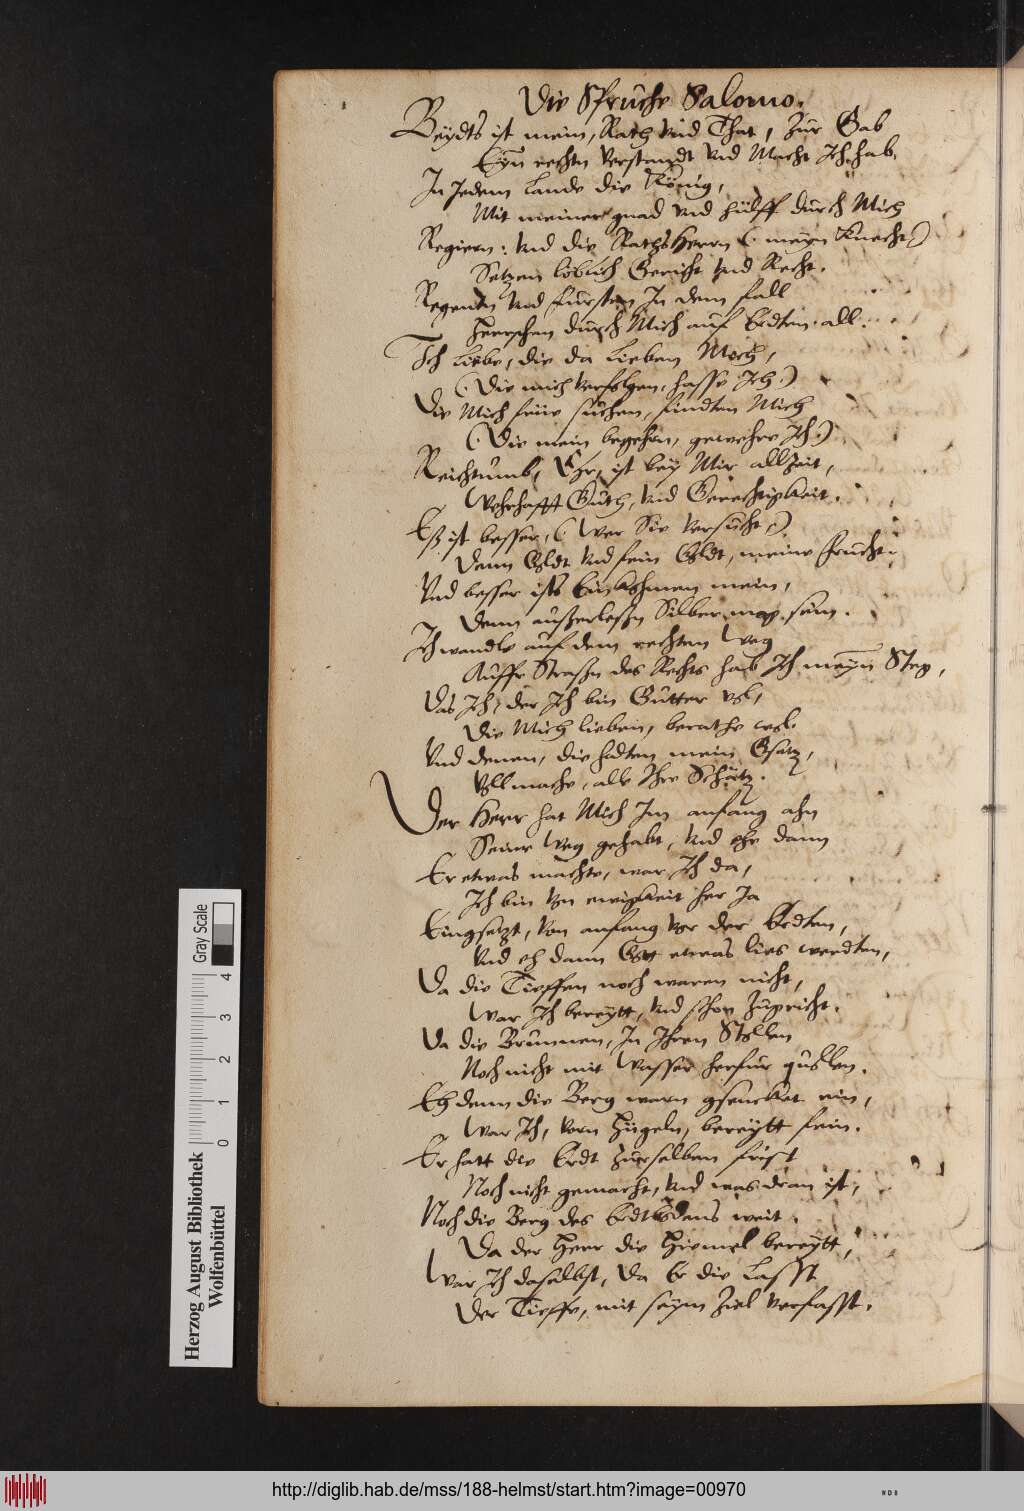 Die Spruche Salomo.
Beydts ist mein, Rath vnd That, zur Gab
Eÿn rechtn Verstandt vnd Macht Ich hab.
In Jedem Lande die König,
Mit meiner gnad vnd hülff durch Mich
Regiern: vnd die RathsHerrn (meyn Knecht)
Setzen löblich Gericht vnd Recht.
Regentn vnd fursten In dem fall
Herrschen durch Mich auf Erdten all.
Ich Liebe, die da Lieben Mich,
(Die mich verfolgen, hasse Ich.)
Die Mich früe suchen, findten Mich
(Die mein begehrn, gewehre Ich.)
Reichtumb, Ehr, ist bey Mir allzeit,
Wehrhafft Guth, vnd Gerechtigkeit.
Eß ist besser, (Wer Sie versucht,)
Denn Goldt vnd fein Goldt, meine frucht.
Vnd besser ists Einkohmen mein,
Denn außerleßn Silber mag sein.
Ich wandle auf dem rechten Weg
Auffr Straßn des Rechts hab Ich meyn Steg,
Das Ich, der Ich bin Gutter vol,
Die Mich lieben, berathe wol.
Vnd denen, die hidten mein Gsatz,
Voll mache, alle Ihre Schätz.
Der Herr hat Mich Im anfang ahn
Seiner Weg gehabt, vnd ehe dann
Er etwas machte, war Ich da,
Ich bin von ewigkeit her Ja
Eingsetzt, von anfang vor der Erdten,
Vnd eh dann Gott etwas lies werdten,
Da die Tieffen noch waren nicht,
War Ich bereytt, vnd schon zugericht.
Da die Brunnen, In Ihren Stellen
Noch nicht mit Wasser herfur quollen.
Eh denn die Berg warn gsencket ein,
War Ich, vorn Hügeln, bereytt fein.
Er hatt die Erdt zurselben frist
Noch nicht gemacht, vnd was dran ist,
Noch die Berg des Erdtbodens weit.
Da der Herr die Himel bereytt,
War Ich daselbst, Da Er die Lasst
Der Tieffe, mit seym Ziel verfasst.
Gray Scale
0 1 2 3 4
Herzog August Bibliothek
Wolfenbüttel
http://diglib.hab.de/mss/188-helmst/start.htm?image=00970